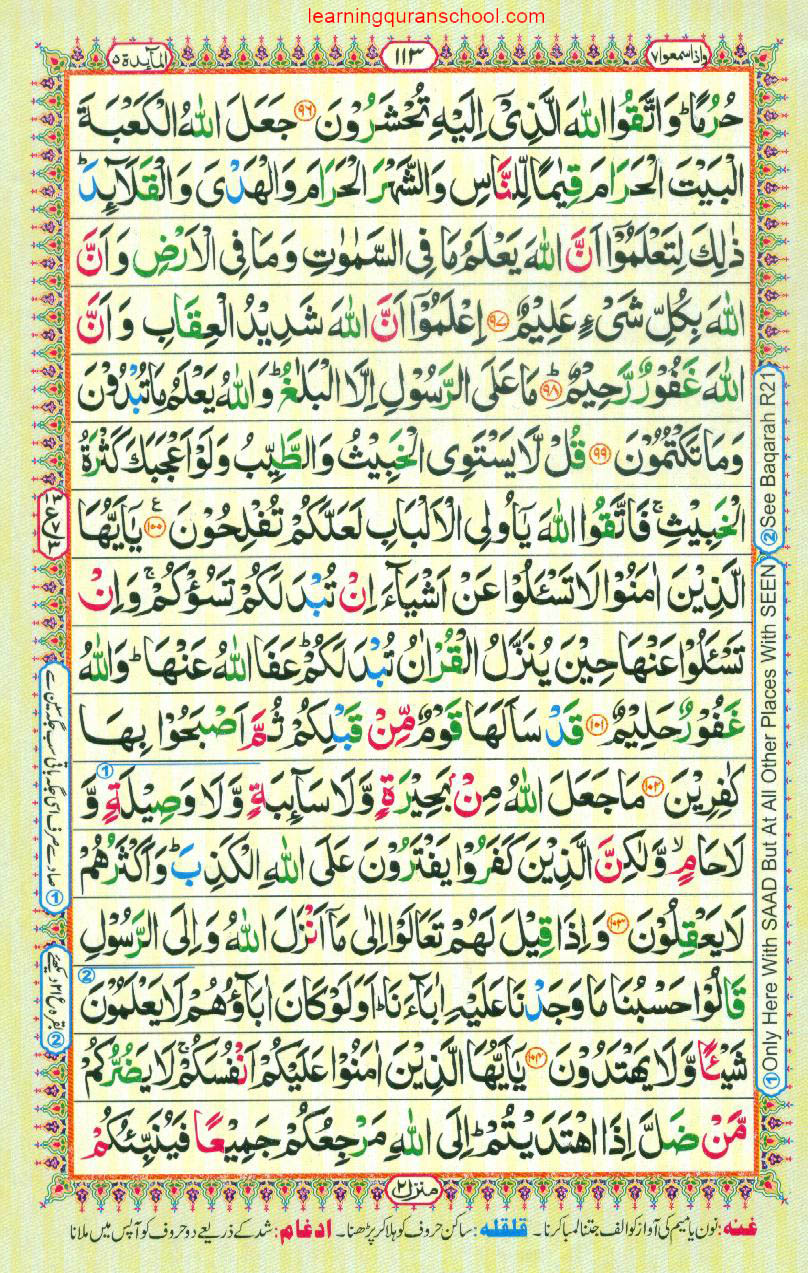 learningquranschool.com
المآئدة ۵
۱۱۳
واذا سمعوا ۷
حُرُمًا ؕ وَاتَّقُوا اللّٰهَ الَّذِيْۤ اِلَيْهِ تُحْشَرُوْنَ ﴿۹۶﴾ جَعَلَ اللّٰهُ الْكَعْبَةَ
الْبَيْتَ الْحَرَامَ قِيٰمًا لِّلنَّاسِ وَالشَّهْرَ الْحَرَامَ وَالْهَدْيَ وَالْقَلَآئِدَ ؕ
ذٰلِكَ لِتَعْلَمُوْۤا اَنَّ اللّٰهَ يَعْلَمُ مَا فِي السَّمٰوٰتِ وَمَا فِي الْاَرْضِ وَاَنَّ
اللّٰهَ بِكُلِّ شَيْءٍ عَلِيْمٌ ﴿۹۷﴾ اِعْلَمُوْۤا اَنَّ اللّٰهَ شَدِيْدُ الْعِقَابِ وَاَنَّ
اللّٰهَ غَفُوْرٌ رَّحِيْمٌ ؕ ﴿۹۸﴾ مَا عَلَى الرَّسُوْلِ اِلَّا الْبَلٰغُ ؕ وَاللّٰهُ يَعْلَمُ مَا تُبْدُوْنَ
وَمَا تَكْتُمُوْنَ ﴿۹۹﴾ قُلْ لَّا يَسْتَوِي الْخَبِيْثُ وَالطَّيِّبُ وَلَوْ اَعْجَبَكَ كَثْرَةُ
الْخَبِيْثِ ۚ فَاتَّقُوا اللّٰهَ يٰۤاُولِي الْاَلْبَابِ لَعَلَّكُمْ تُفْلِحُوْنَ ﴿۱۰۰﴾ يٰۤاَيُّهَا
الَّذِيْنَ اٰمَنُوْا لَا تَسْـَٔلُوْا عَنْ اَشْيَآءَ اِنْ تُبْدَ لَكُمْ تَسُؤْكُمْ ۚ وَاِنْ
تَسْـَٔلُوْا عَنْهَا حِيْنَ يُنَزَّلُ الْقُرْاٰنُ تُبْدَ لَكُمْ ؕ عَفَا اللّٰهُ عَنْهَا ؕ وَاللّٰهُ
غَفُوْرٌ حَلِيْمٌ ﴿۱۰۱﴾ قَدْ سَاَلَهَا قَوْمٌ مِّنْ قَبْلِكُمْ ثُمَّ اَصْبَحُوْا بِهَا
كٰفِرِيْنَ ﴿۱۰۲﴾ مَا جَعَلَ اللّٰهُ مِنْۢ بَحِيْرَةٍ وَّلَا سَآئِبَةٍ وَّلَا وَصِيْلَةٍ وَّ
لَا حَامٍ ۙ وَّلٰكِنَّ الَّذِيْنَ كَفَرُوْا يَفْتَرُوْنَ عَلَى اللّٰهِ الْكَذِبَ ؕ وَاَكْثَرُهُمْ
لَا يَعْقِلُوْنَ ﴿۱۰۳﴾ وَاِذَا قِيْلَ لَهُمْ تَعَالَوْا اِلٰى مَاۤ اَنْزَلَ اللّٰهُ وَاِلَى الرَّسُوْلِ
قَالُوْا حَسْبُنَا مَا وَجَدْنَا عَلَيْهِ اٰبَآءَنَا ؕ اَوَلَوْ كَانَ اٰبَآؤُهُمْ لَا يَعْلَمُوْنَ
شَيْـًٔا وَّلَا يَهْتَدُوْنَ ﴿۱۰۴﴾ يٰۤاَيُّهَا الَّذِيْنَ اٰمَنُوْا عَلَيْكُمْ اَنْفُسَكُمْ ۚ لَا يَضُرُّكُمْ
مَّنْ ضَلَّ اِذَا اهْتَدَيْتُمْ ؕ اِلَى اللّٰهِ مَرْجِعُكُمْ جَمِيْعًا فَيُنَبِّئُكُمْ
منزل ۲
غنه: نون یا میم کی آواز کو الف جتنا لمبا کرنا۔ قلقله: ساکن حروف کو ہلا کر پڑھنا۔ ادغام: شد کے ذریعے دو حروف کو آپس میں ملانا
② See Baqarah R21
① Only Here With SAAD But At All Other Places With SEEN
① صاد سے صرف اسی جگہ باقی سب جگہ سین سے